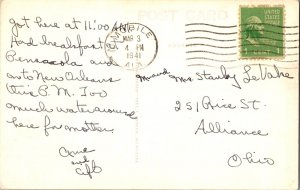 POST CARD
got here at 11:00 AM
Had breakfast at
Pensacola and
onto New Orleans
this P.M. Too
much water around
here for mother.
MOBILE
MAR 3
4 PM
1941
Mr and Mrs Stanley
251 Rice St.
Alliance
Ohio
and